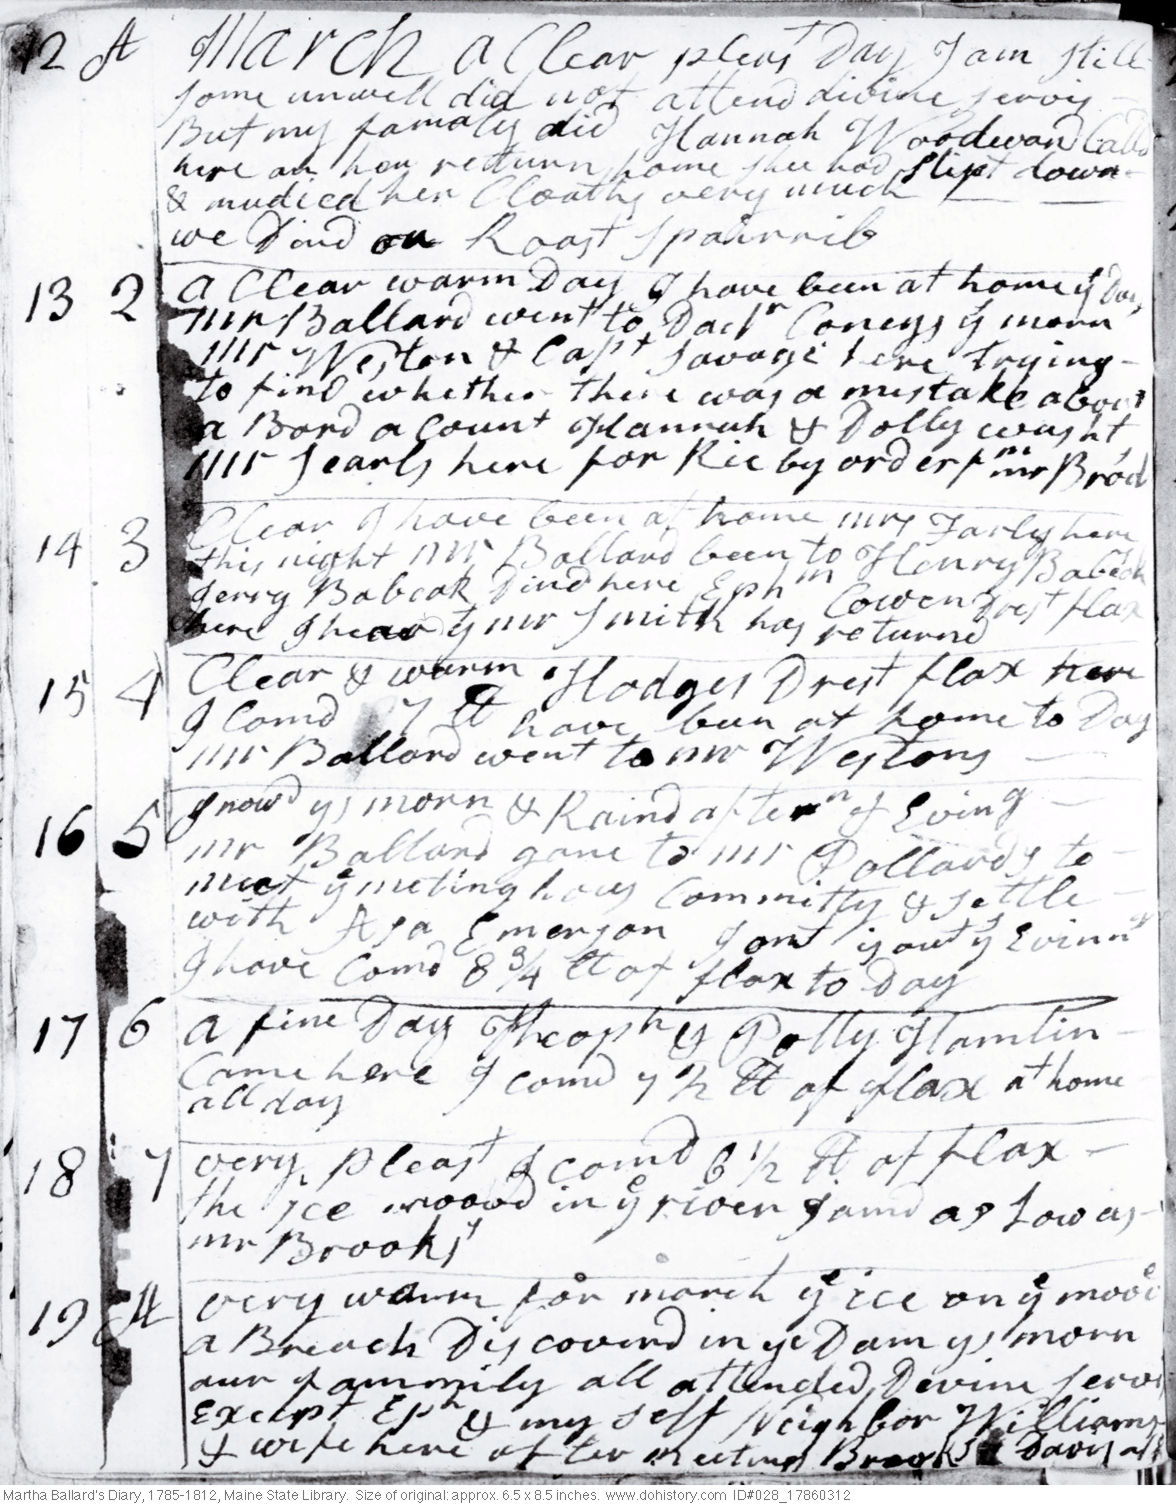 12 A March a Clear pleast Day I am still
some unwell did not attend divine servis
But my famaly did Hannah Woodward Calld
here on her retturn home shee had slipt down
& mudied her Cloaths very much
we Dind on Roast Spairrib
13 2 a Clear warm Day I have been at home ys Day
mr Ballard went to Dacn Coneys ys morn
mr Weston & Capt Savage here trying
to find whether there was a mestake about
a Bord acount Hannah & Dolly washt
mr Searls here for Rie by order fm mr Brod
14 3 Clear I have been at home mrs Farly here
this night mr Ballard been to Henry Babcok
Jerry Babcok Dind here Ephm Cowen Drest flax
here I hear yt mr Smith has returnd
15 4 Clear & warm Hodges Drest flax here
I Comd 7 lt have been at home to Day
mr Ballard went to mr Westons
16 5 Snowd ys morn & Raind aftern & Eving
mr Ballard gone to mr Pollards to
meet ye meting hous Committy & settle
with Asa Emerson Jont is out ys Evinng
I have Comd 8 3/4 lt of flax to Day
17 6 a fine Day Theoph & Polly Hamlin
Came here I comd 7 1/2 lt of flax at home
all day
18 7 very pleast I comd 6 1/2 lt of flax
the Ice moovd in ye river Jamd as Low as
mr Brooks's
19 A very warm for march ye ice on ye moove
a Breach Discoverd in ye Dam ys morn
our fammily all attended Devine servis
Except Eph & my self Neighbor Williams
& wife here after meeting Brooks Davis
Martha Ballard's Diary, 1785-1812, Maine State Library. Size of original: approx. 6.5 x 8.5 inches. www.dohistory.com ID#028_17860312